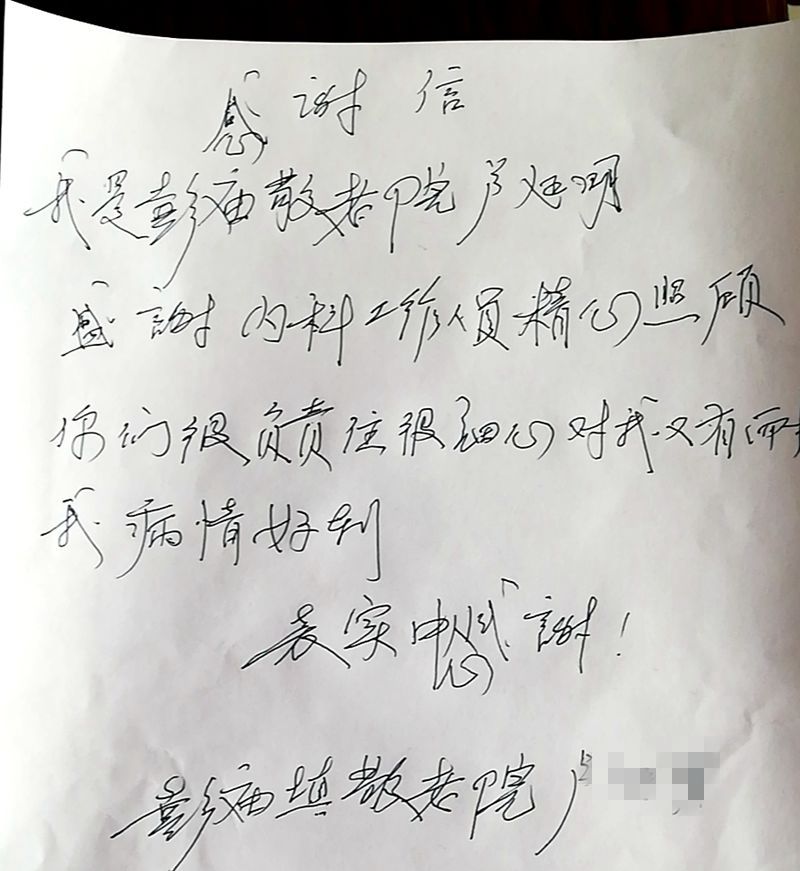 感謝信
我是彭庙敬老院卢延明
感謝内科工作人員精心照顾
你们很负责任很细心对我又有耐
我病情好到
表实中感謝!
彭庙填敬老院卢